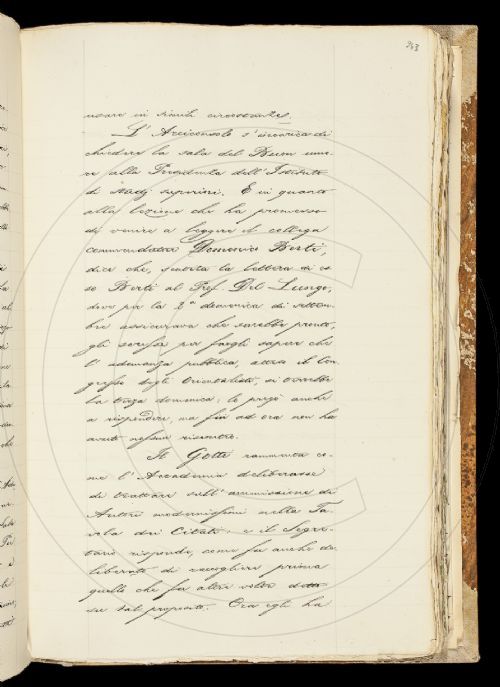 263
usare in simili circostanze.
L'Arciconsolo s'incarica di
chiedere la sala del Buon umo-
re alla Presidenza dell'Istituto
di Studj superiori. E in quanto
alla lezione che ha promesso
di venire a leggere il collega
commendatore Domenico Berti,
dice che, scorta la lettera di es
so Berti al Prof. Del Lungo,
dove per la 2ª domenica di settem-
bre assicurava che sarebbe pronto,
gli scrisse per fargli sapere che
l'adunanza pubblica, atteso il Con-
gresso degli Orientalisti, si terrebbe
la terza domenica: lo pregò anche
a rispondere, ma fin ad ora non ha
avuto nessun riscontro.
Il Gotti rammenta co-
me l'Accademia deliberasse
di trattare sull'ammissione di
Autori modernissimi nella Ta-
vola dei Citati: e il Segre-
tario risponde, come fu anche de-
liberato di raccogliere prima
quello che fu altre volte detto
su tal proposito. Ora egli ha